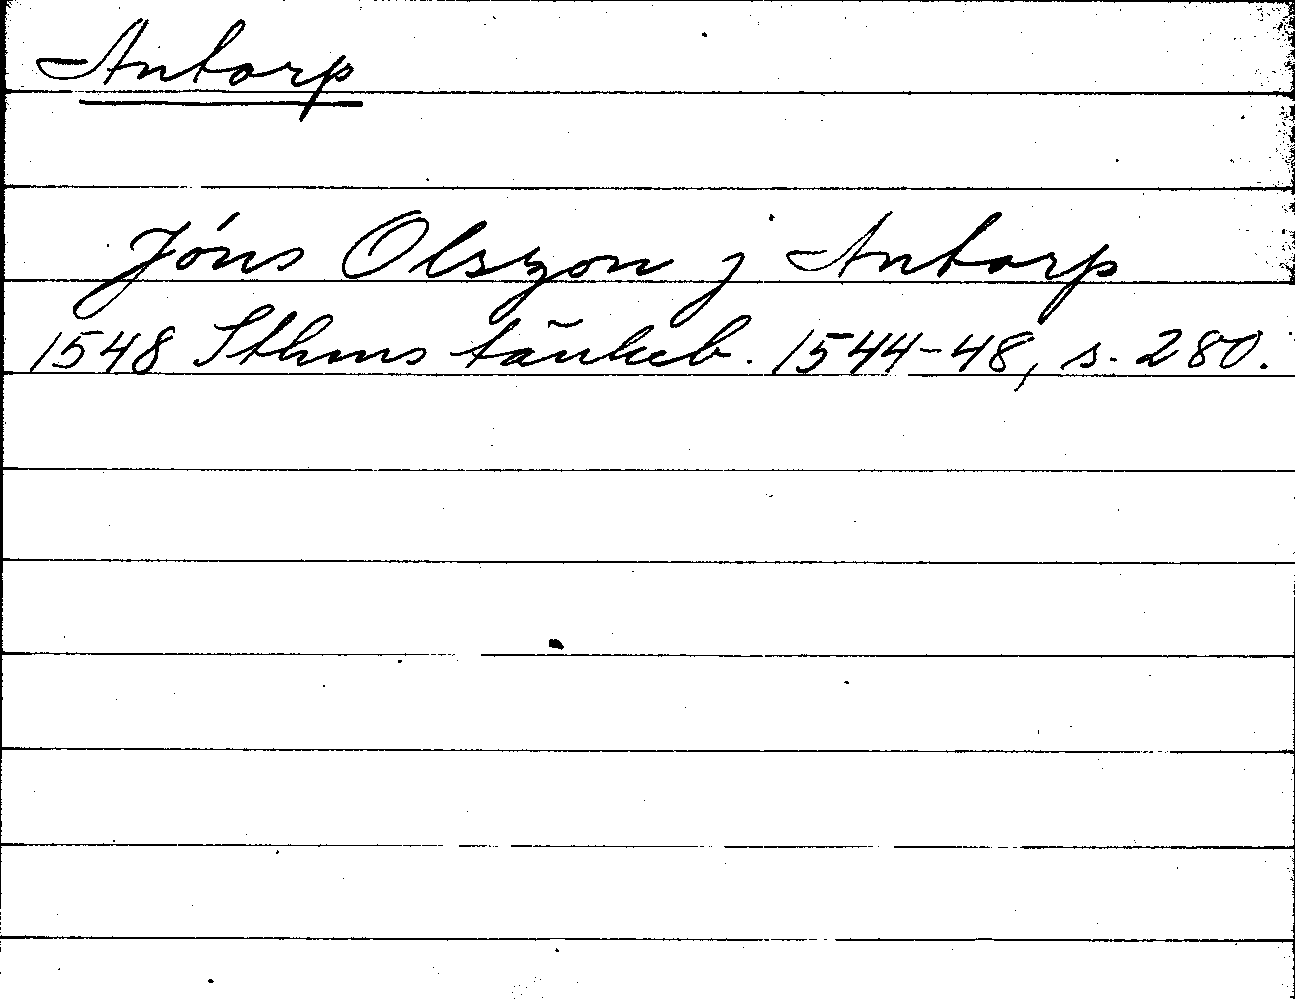 Antorp
Jöns Olszon j Antorp
1548 Sthms tänkeb. 1544-48, s. 280.